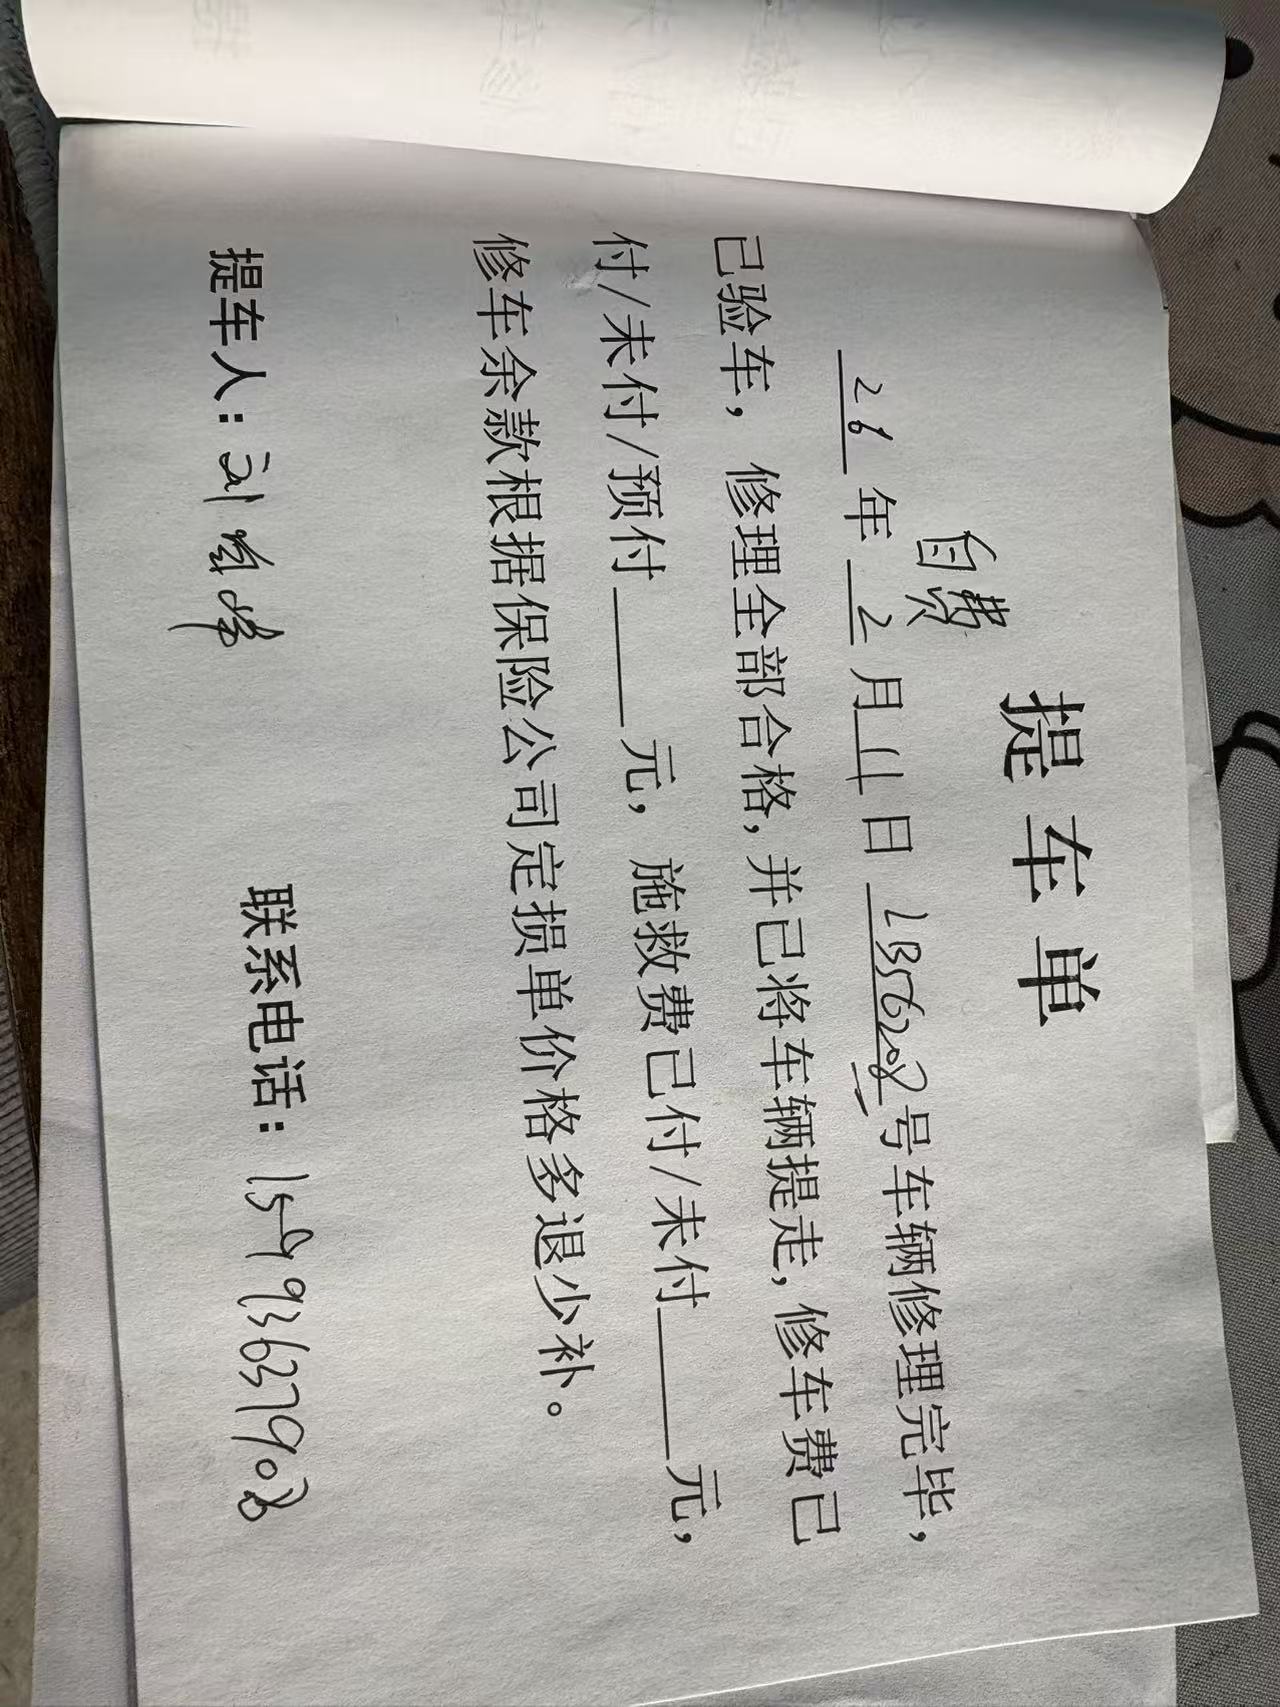 提车单
自费
26年2月11日LB56208号车辆修理完毕，
已验车，修理全部合格，并已将车辆提走，修车费已
付/未付/预付____元，施救费已付/未付____元，
修车余款根据保险公司定损单价格多退少补。
提车人：刘 联系电话：15993637908